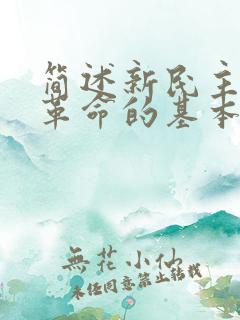 简述新民主
革命的基本
無花小仙
未经同意禁止转载